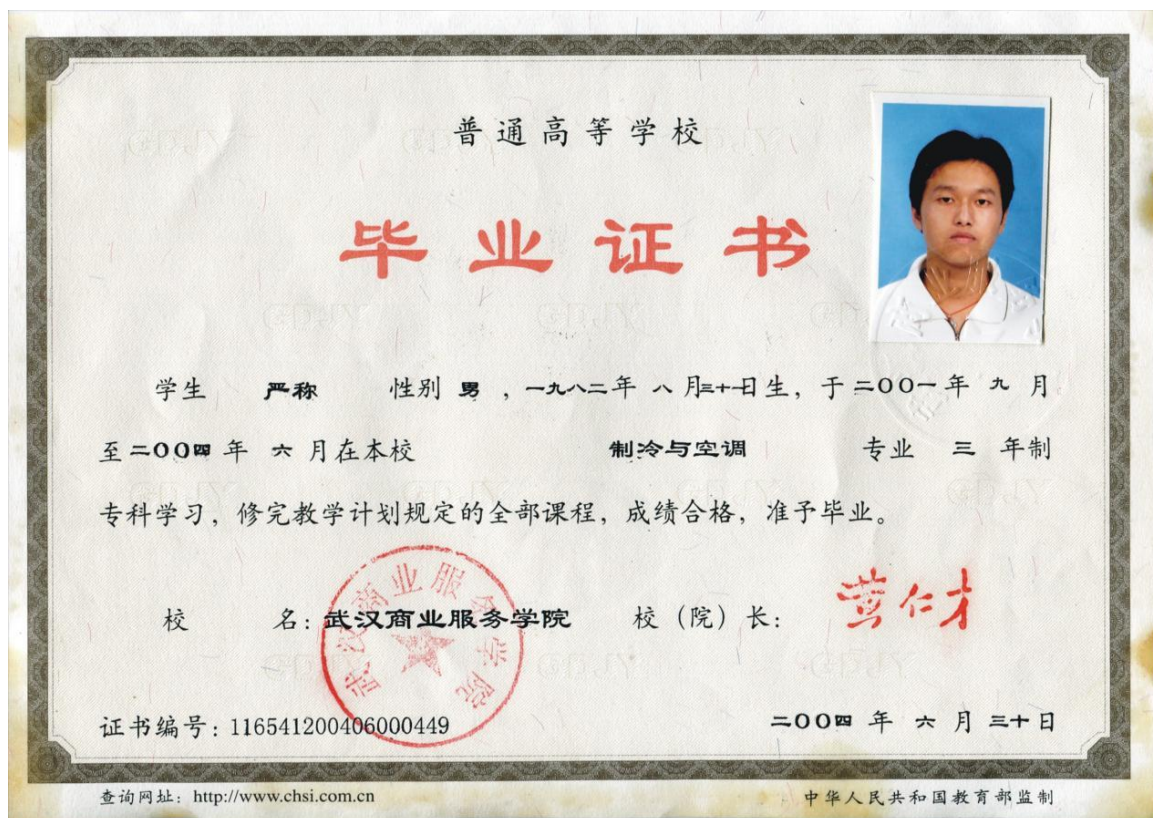 普通高等学校
毕业证书
学生 严称 性别 男 ，一九八二年 八 月三十一日生，于二〇〇一年 九 月
至二〇〇四 年 六 月在本校 制冷与空调 专业 三 年制
专科学习，修完教学计划规定的全部课程，成绩合格，准予毕业。
武汉商业服务学院
校 名：武汉商业服务学院 校（院）长：
证书编号：116541200406000449 二〇〇四 年 六 月 三十日
查询网址：http://www.chsi.com.cn 中华人民共和国教育部监制